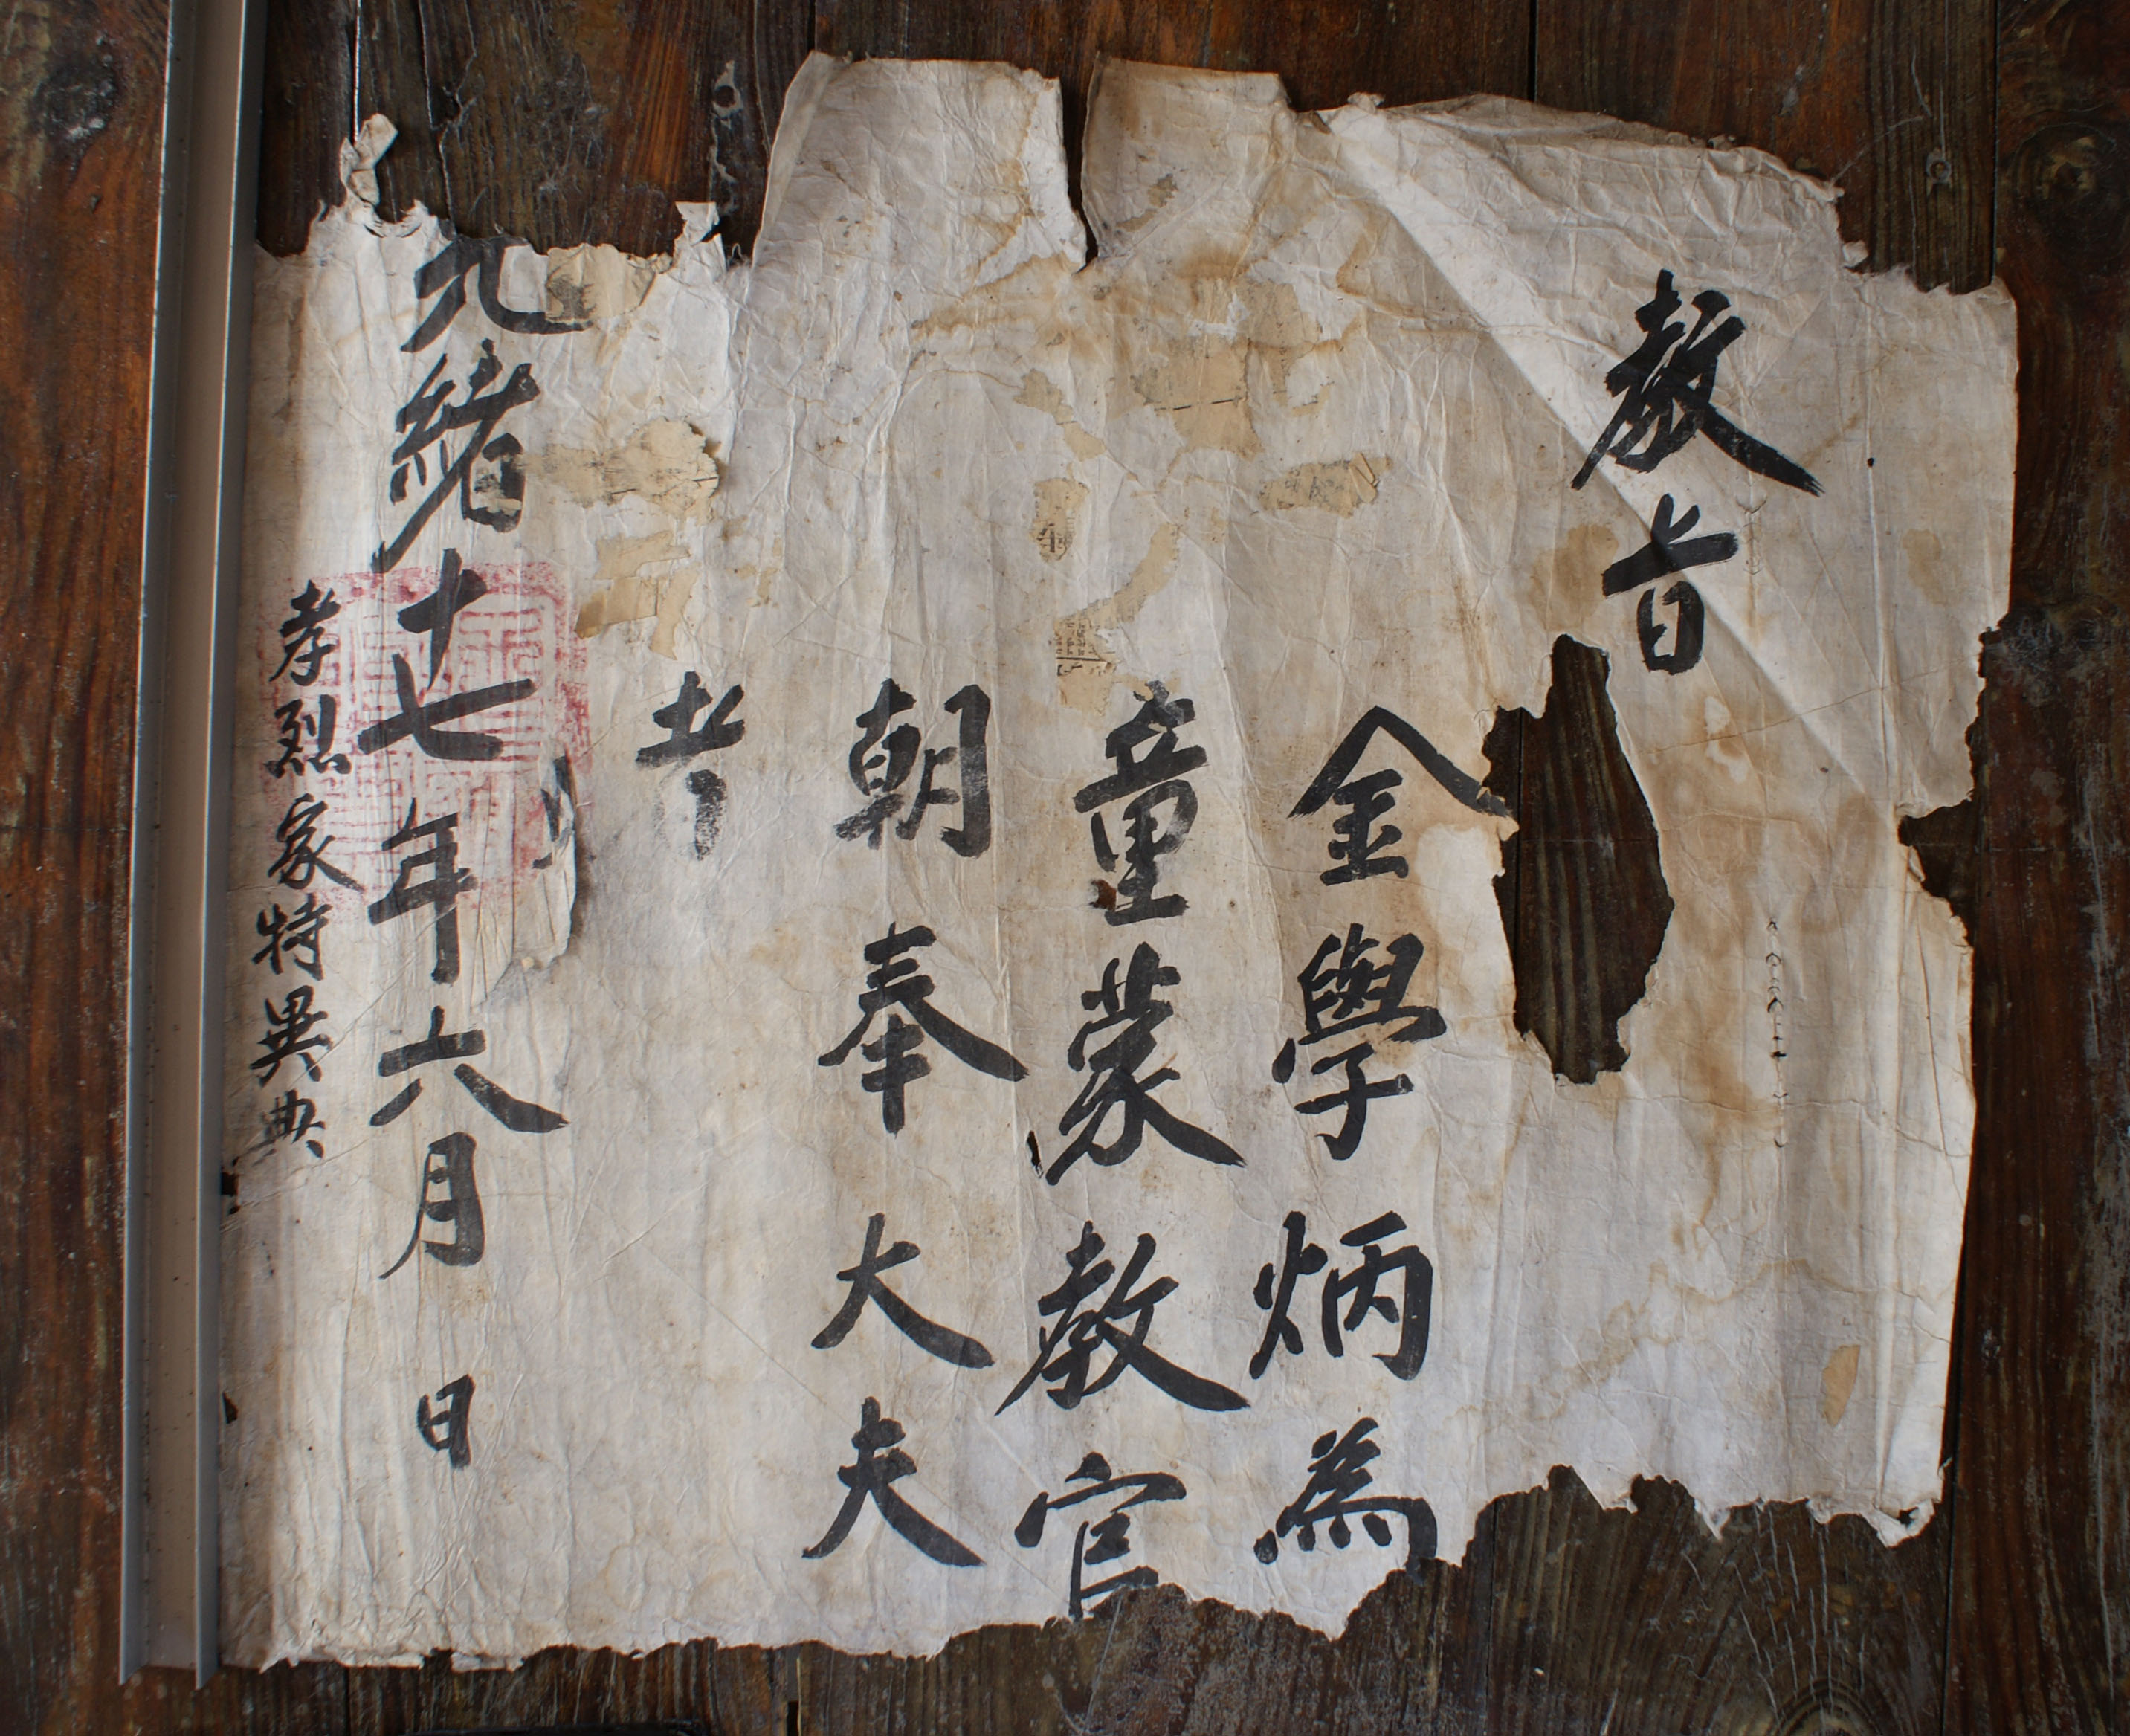 教旨
金學炳為
童蒙教官
朝奉大夫
者
光緖十七年六月 日
孝烈家特異典